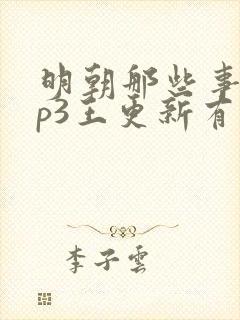 明朝那些事
p3王更新有
李子雲